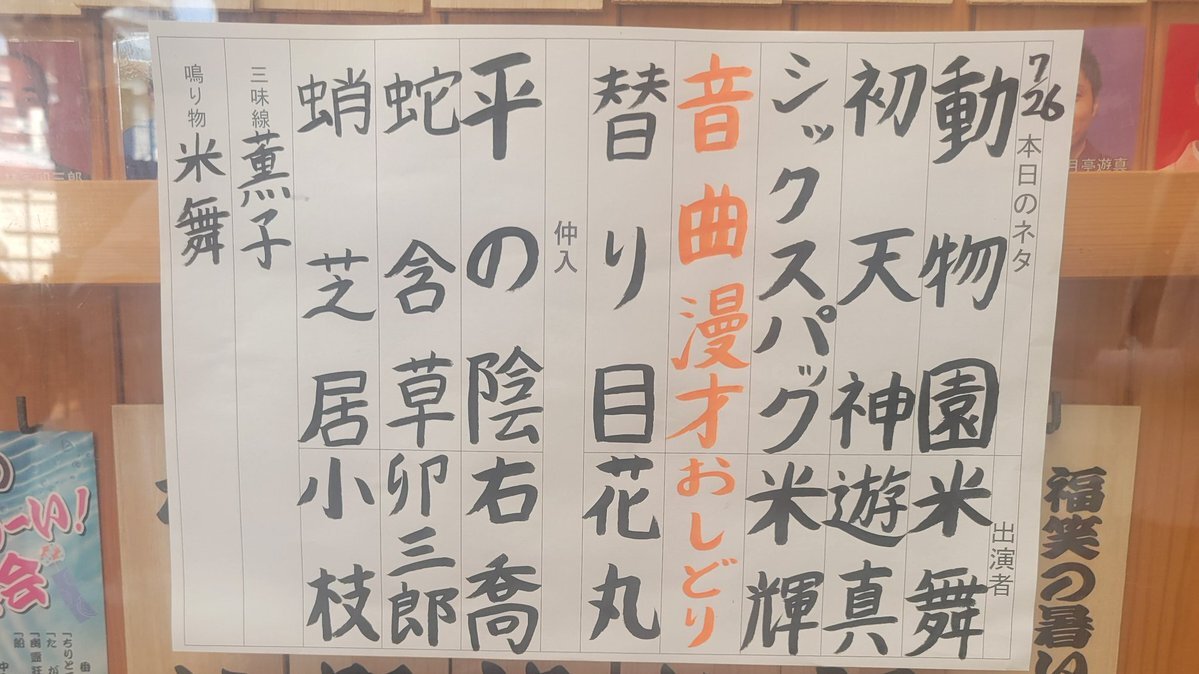 7/26 本日のネタ 出演者
動物園 米舞
初天神 遊真
シックスパグ 米輝
音曲漫才 おしどり
替り目 花丸
仲入
平の陰 右喬
蛇含草 卯三郎
蛸芝居 小枝
三味線 薫子
鳴り物 米舞
月亭遊真
福笑の暑い